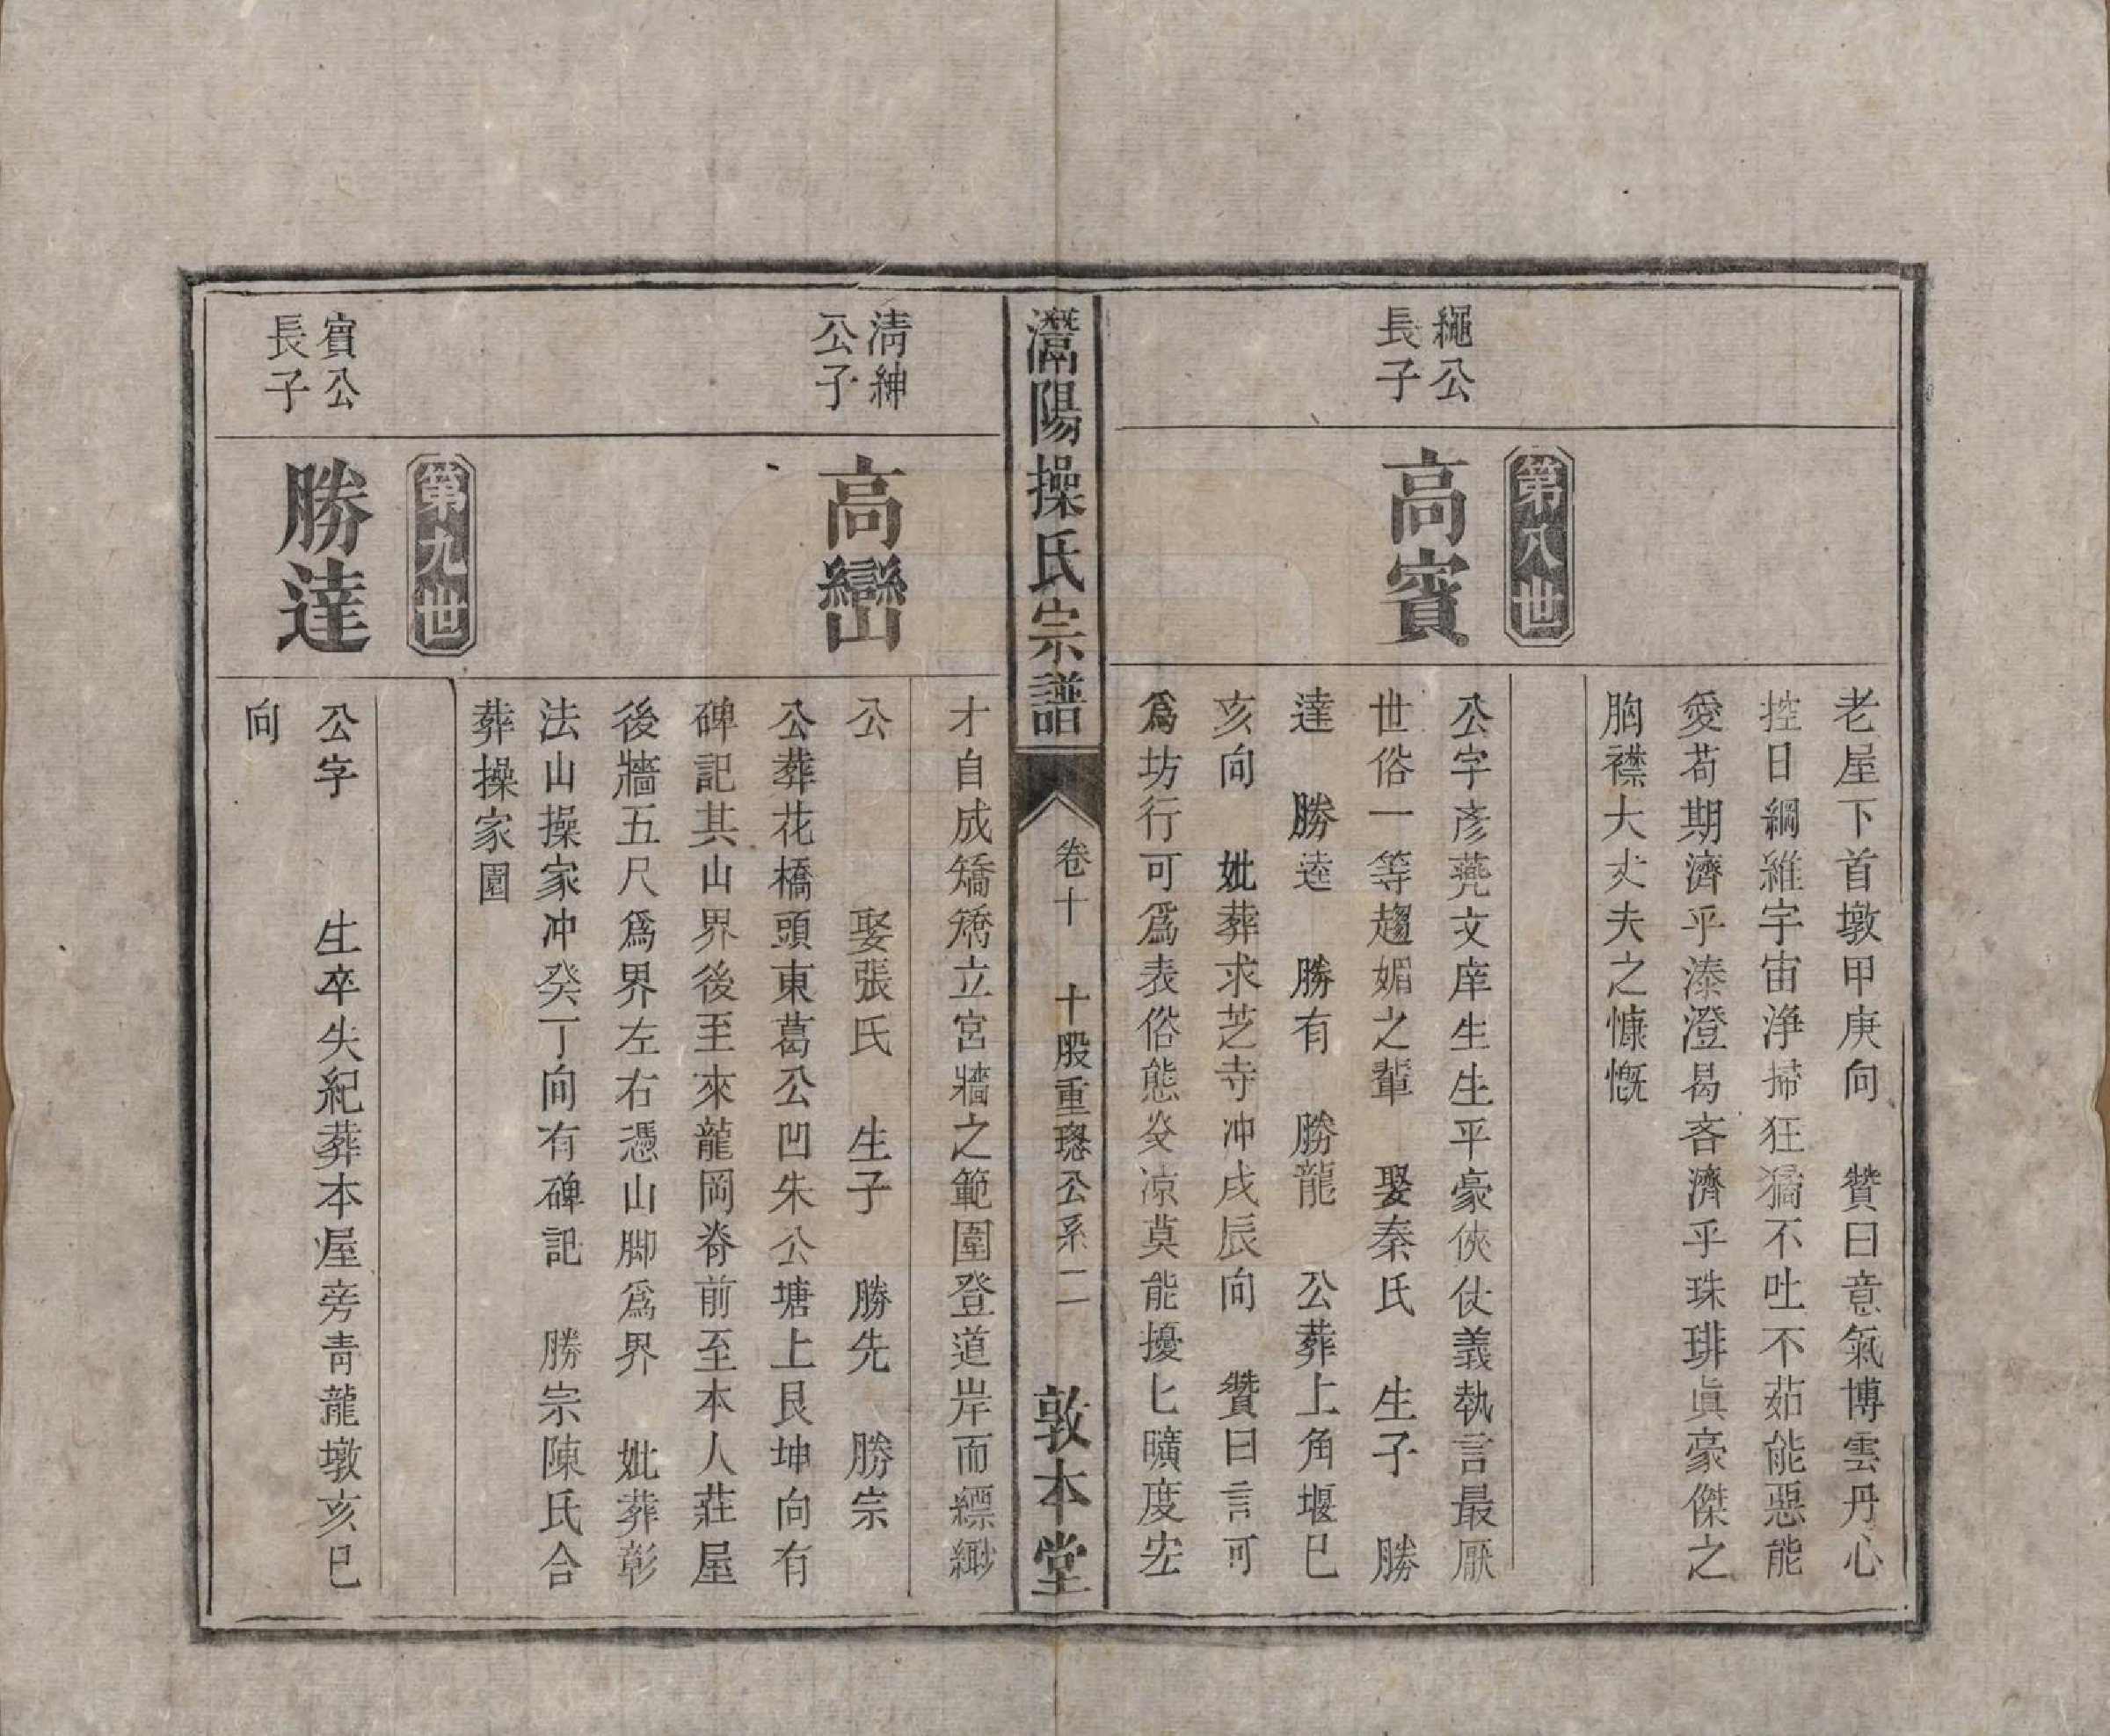 老屋下首墩甲庚向 贊曰意氣博雲丹心
控日綱維宇宙浄掃狂獝不吐不茹能惡能
愛苟期濟乎溱澄曷吝濟乎珠琲眞豪傑之
胸襟大丈夫之慷慨
第八世
繩公
長子
高賓
公字彥薨文庠生生平豪俠仗義執言最厭
世俗一等趨媚之輩 娶秦氏 生子 勝
達 勝逵 勝有 勝龍 公葬上角堰巳
亥向 妣葬求芝寺冲戌辰向 贊曰言可
爲坊行可爲表俗態炎凉莫能擾匕曠度宏
灊陽操氏宗譜
卷十
十股重璁公系二
敦本堂
才自成矯矯立宮牆之範圍登道岸而縹緲
清紳
公子
高巒
公 娶張氏 生子 勝先 勝宗
公葬花橋頭東葛公凹朱公塘上艮坤向有
碑記其山界後至來龍岡脊前至本人莊屋
後牆五尺爲界左右憑山脚爲界 妣葬彰
法山操家冲癸丁向有碑記 勝宗陳氏合
葬操家園
第九世
賓公
長子
勝達
公字 生卒失紀葬本屋旁靑龍墩亥巳
向